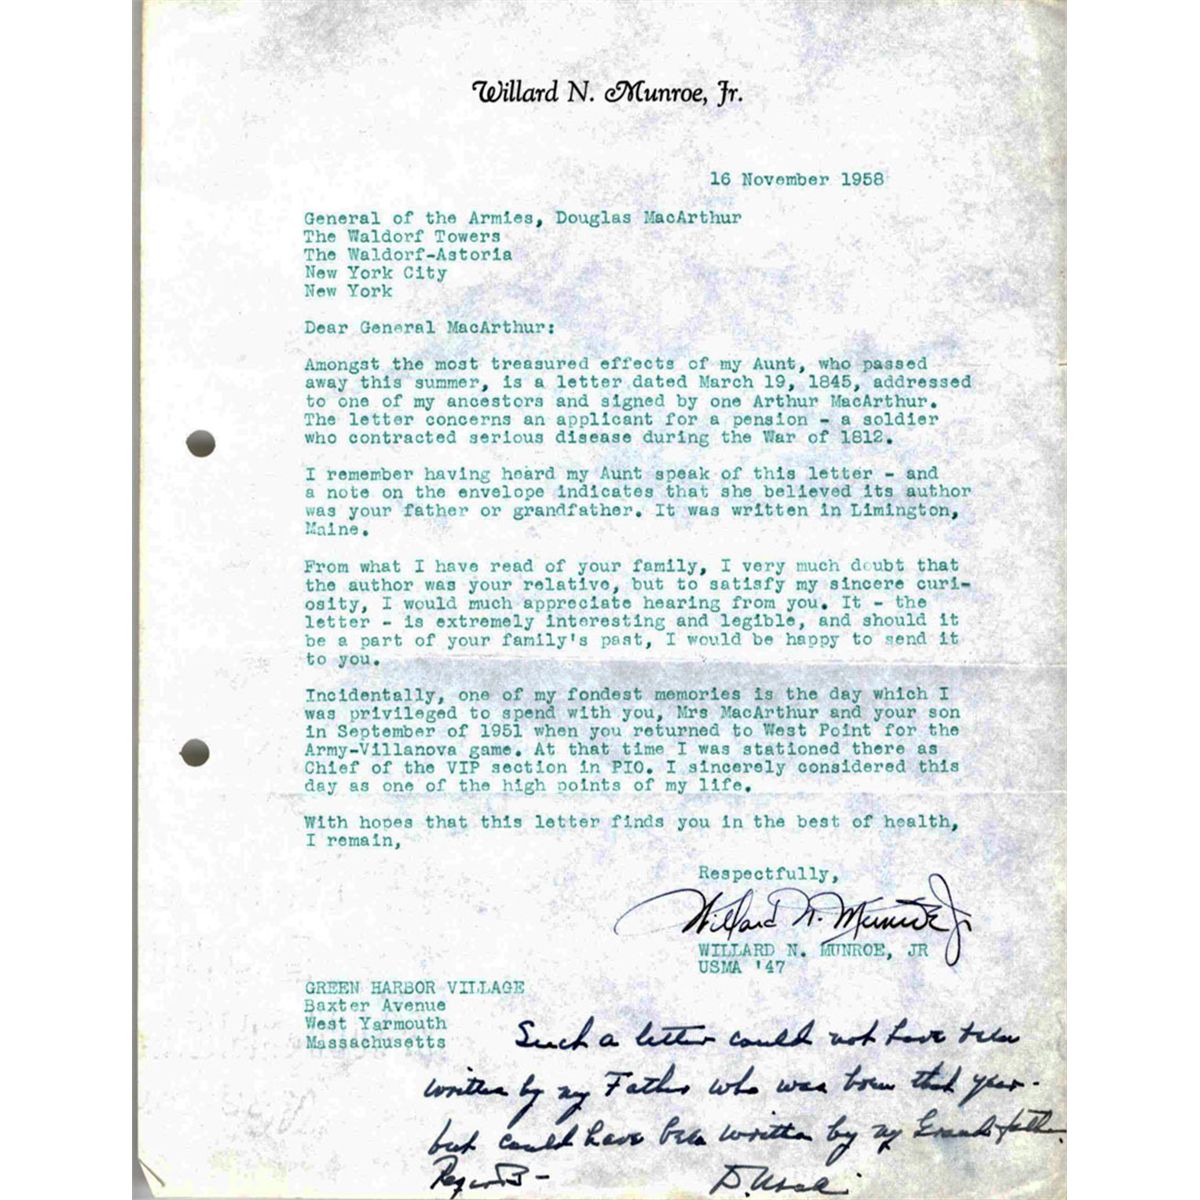 Willard N. Munroe, Jr.
16 November 1958
General of the Armies, Douglas MacArthur
The Waldorf Towers
The Waldorf-Astoria
New York City
New York
Dear General MacArthur:
Amongst the most treasured effects of my Aunt, who passed
away this summer, is a letter dated March 19, 1845, addressed
to one of my ancestors and signed by one Arthur MacArthur.
The letter concerns an applicant for a pension - a soldier
who contracted serious disease during the War of 1812.
I remember having heard my Aunt speak of this letter - and
a note on the envelope indicates that she believed its author
was your father or grandfather. It was written in Limington,
Maine.
From what I have read of your family, I very much doubt that
the author was your relative, but to satisfy my sincere curi-
osity, I would much appreciate hearing from you. It - the
letter - is extremely interesting and legible, and should it
be a part of your family's past, I would be happy to send it
to you.
Incidentally, one of my fondest memories is the day which I
was privileged to spend with you, Mrs MacArthur and your son
in September of 1951 when you returned to West Point for the
Army-Villanova game. At that time I was stationed there as
Chief of the VIP section in PIO. I sincerely considered this
day as one of the high points of my life.
With hopes that this letter finds you in the best of health,
I remain,
Respectfully,
Willard N. Munroe Jr
WILLARD N. MUNROE, JR
USMA '47
GREEN HARBOR VILLAGE
Baxter Avenue
West Yarmouth
Massachusetts
Such a letter could not have been
written by my Father who was born that year -
but could have been written by my Grandfather.
Regards -